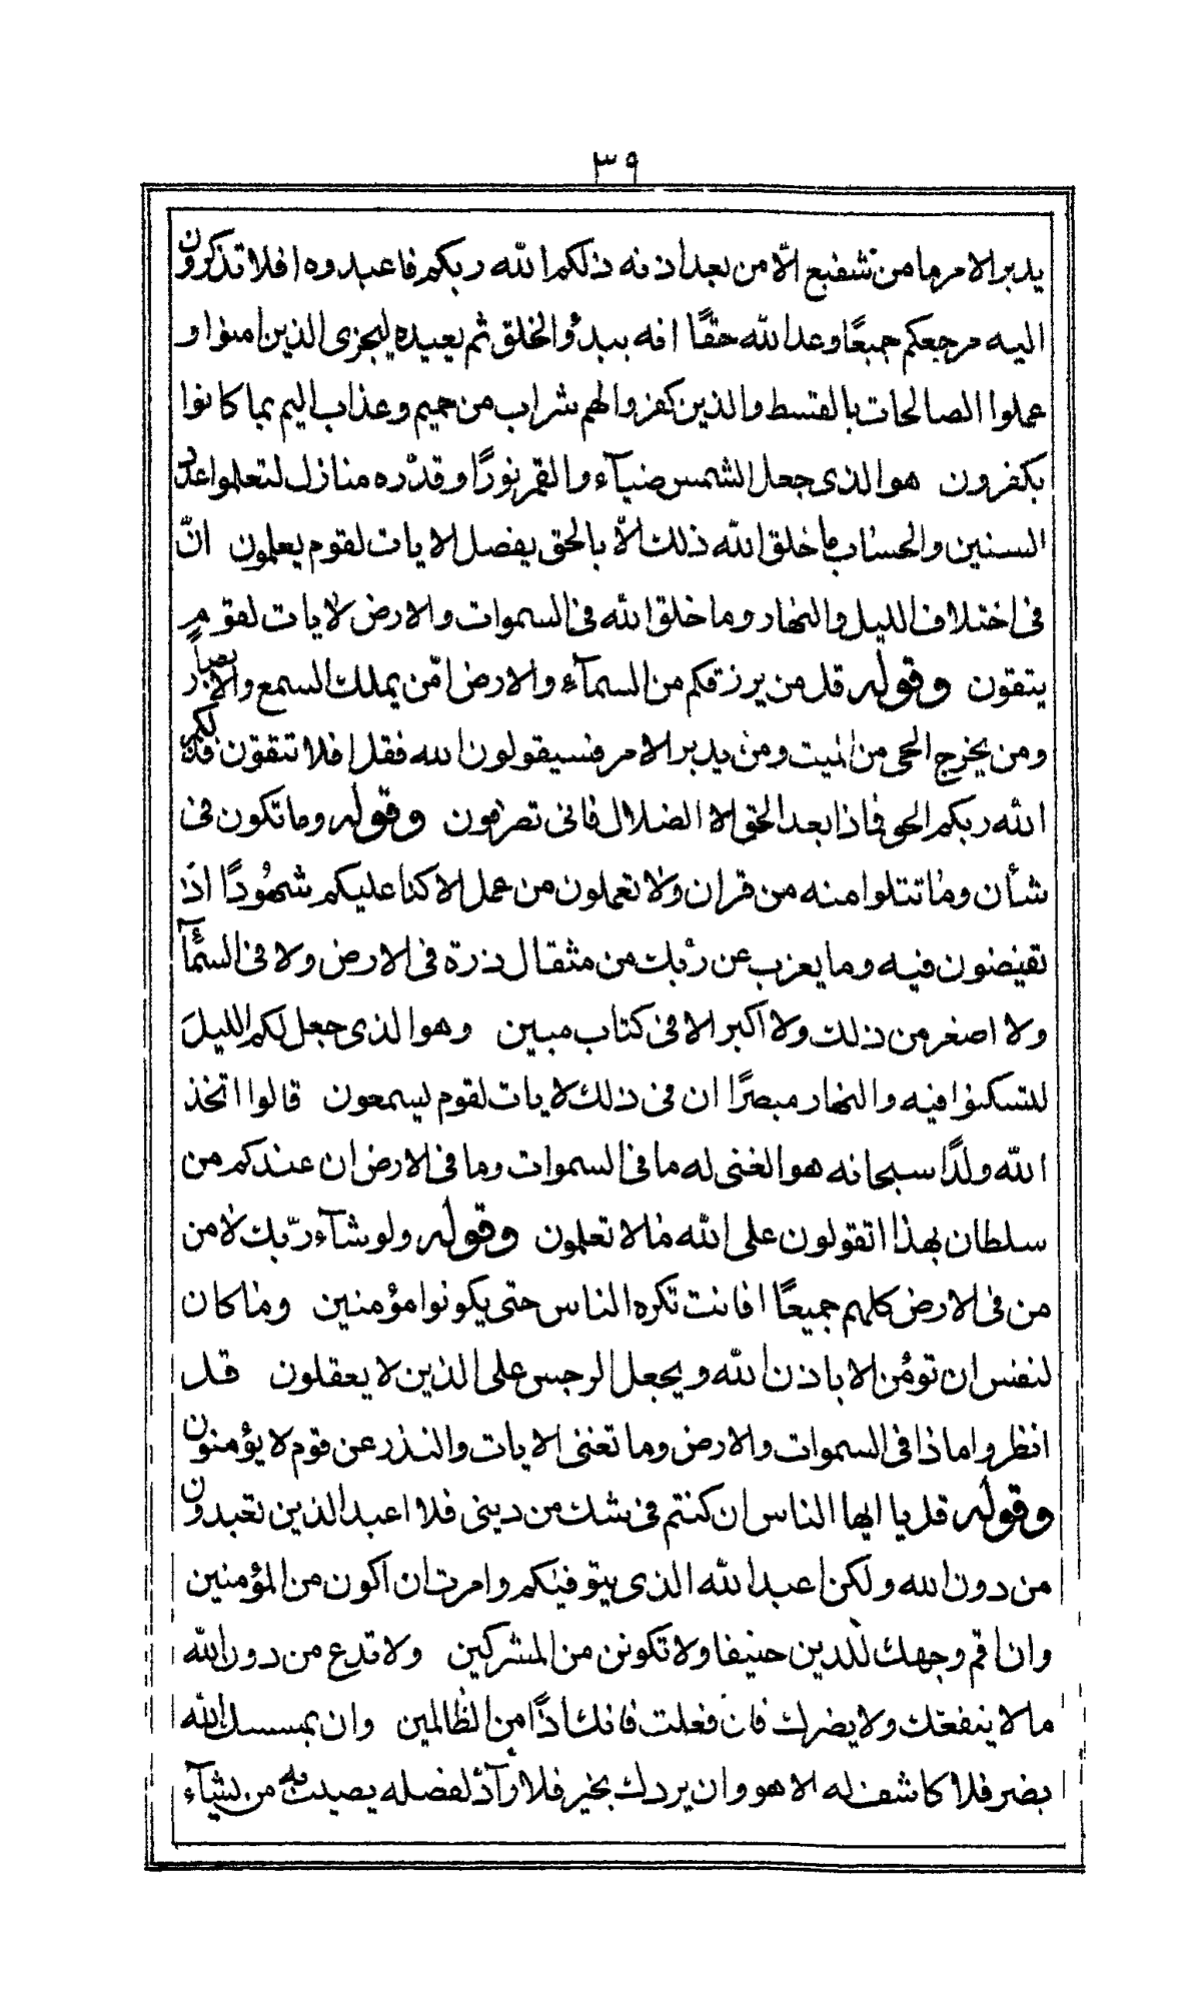 ٣٩
يدبر الامر ما من شفيع الّا من بعد اذنه ذلكم الله ربكم فاعبدوه افلا تذكرون
اليه مرجعكم جميعًا وعد الله حقًا انه يبدؤا الخلق ثم يعيده ليجزى الذين امنوا و
عملوا الصالحات بالقسط والذين كفروا لهم شراب من حميم وعذاب اليم بما كانوا
يكفرون هو الذى جعل الشمس ضيآء والقمر نورًا وقدّره منازل لتعلموا عدد
السنين والحساب ما خلق الله ذلك الّا بالحق يفصل الايات لقوم يعلمون انّ
فى اختلاف الليل والنهار وما خلق الله فى السموات والارض لايات لقوم
يتقون وقوله قل من يرزقكم من السمآء والارض امّن يملك السمع والابصار
ومن يخرج الحى من الميت ومن يدبر الامر فسيقولون الله فقل افلا تتقون فذلكم
الله ربكم الحق فماذا بعد الحق الا الضلال فانى تصرفون وقوله وما تكون فى
شأن وما تتلوا منه من قران ولا تعملون من عمل الا كنا عليكم شهُودًا اذ
تفيضون فيه وما يعزب عن ربك من مثقال ذرة فى الارض ولا فى السمآء
ولا اصغر من ذلك ولا اكبر الا فى كتاب مبين وهو الذى جعل لكم الليلَ
لتسكنوا فيه والنهار مبصرًا ان فى ذلك لايات لقوم يسمعون قالوا اتخذ
الله ولدًا سبحانه هو الغنى له ما فى السموات وما فى الارض ان عندكم من
سلطان بهذا اتقولون على الله ما لا تعلمون وقوله ولو شآء ربّك لامن
من فى الارض كلهم جميعًا افانت تكره الناس حتى يكونوا مؤمنين وما كان
لنفس ان تؤمن الا باذن الله ويجعل الرجس على الذين لا يعقلون قل
انظروا ماذا فى السموات والارض وما تغنى الايات والنذر عن قوم لا يؤمنون
وقوله قل يا ايها الناس ان كنتم فى شك من دينى فلا اعبد الذين تعبدون
من دون الله ولكن اعبد الله الذى يتوفيكم وامرت ان اكون من المؤمنين
وان اقم وجهك للدين حنيفا ولا تكونن من المشركين ولا تدع من دون الله
ما لا ينفعك ولا يضرك فان فعلت فانك اذًا من الظالمين وان يمسسك الله
بضر فلا كاشف له الا هو وان يردك بخير فلا رآدّ لفضله يصيب به من يشآء